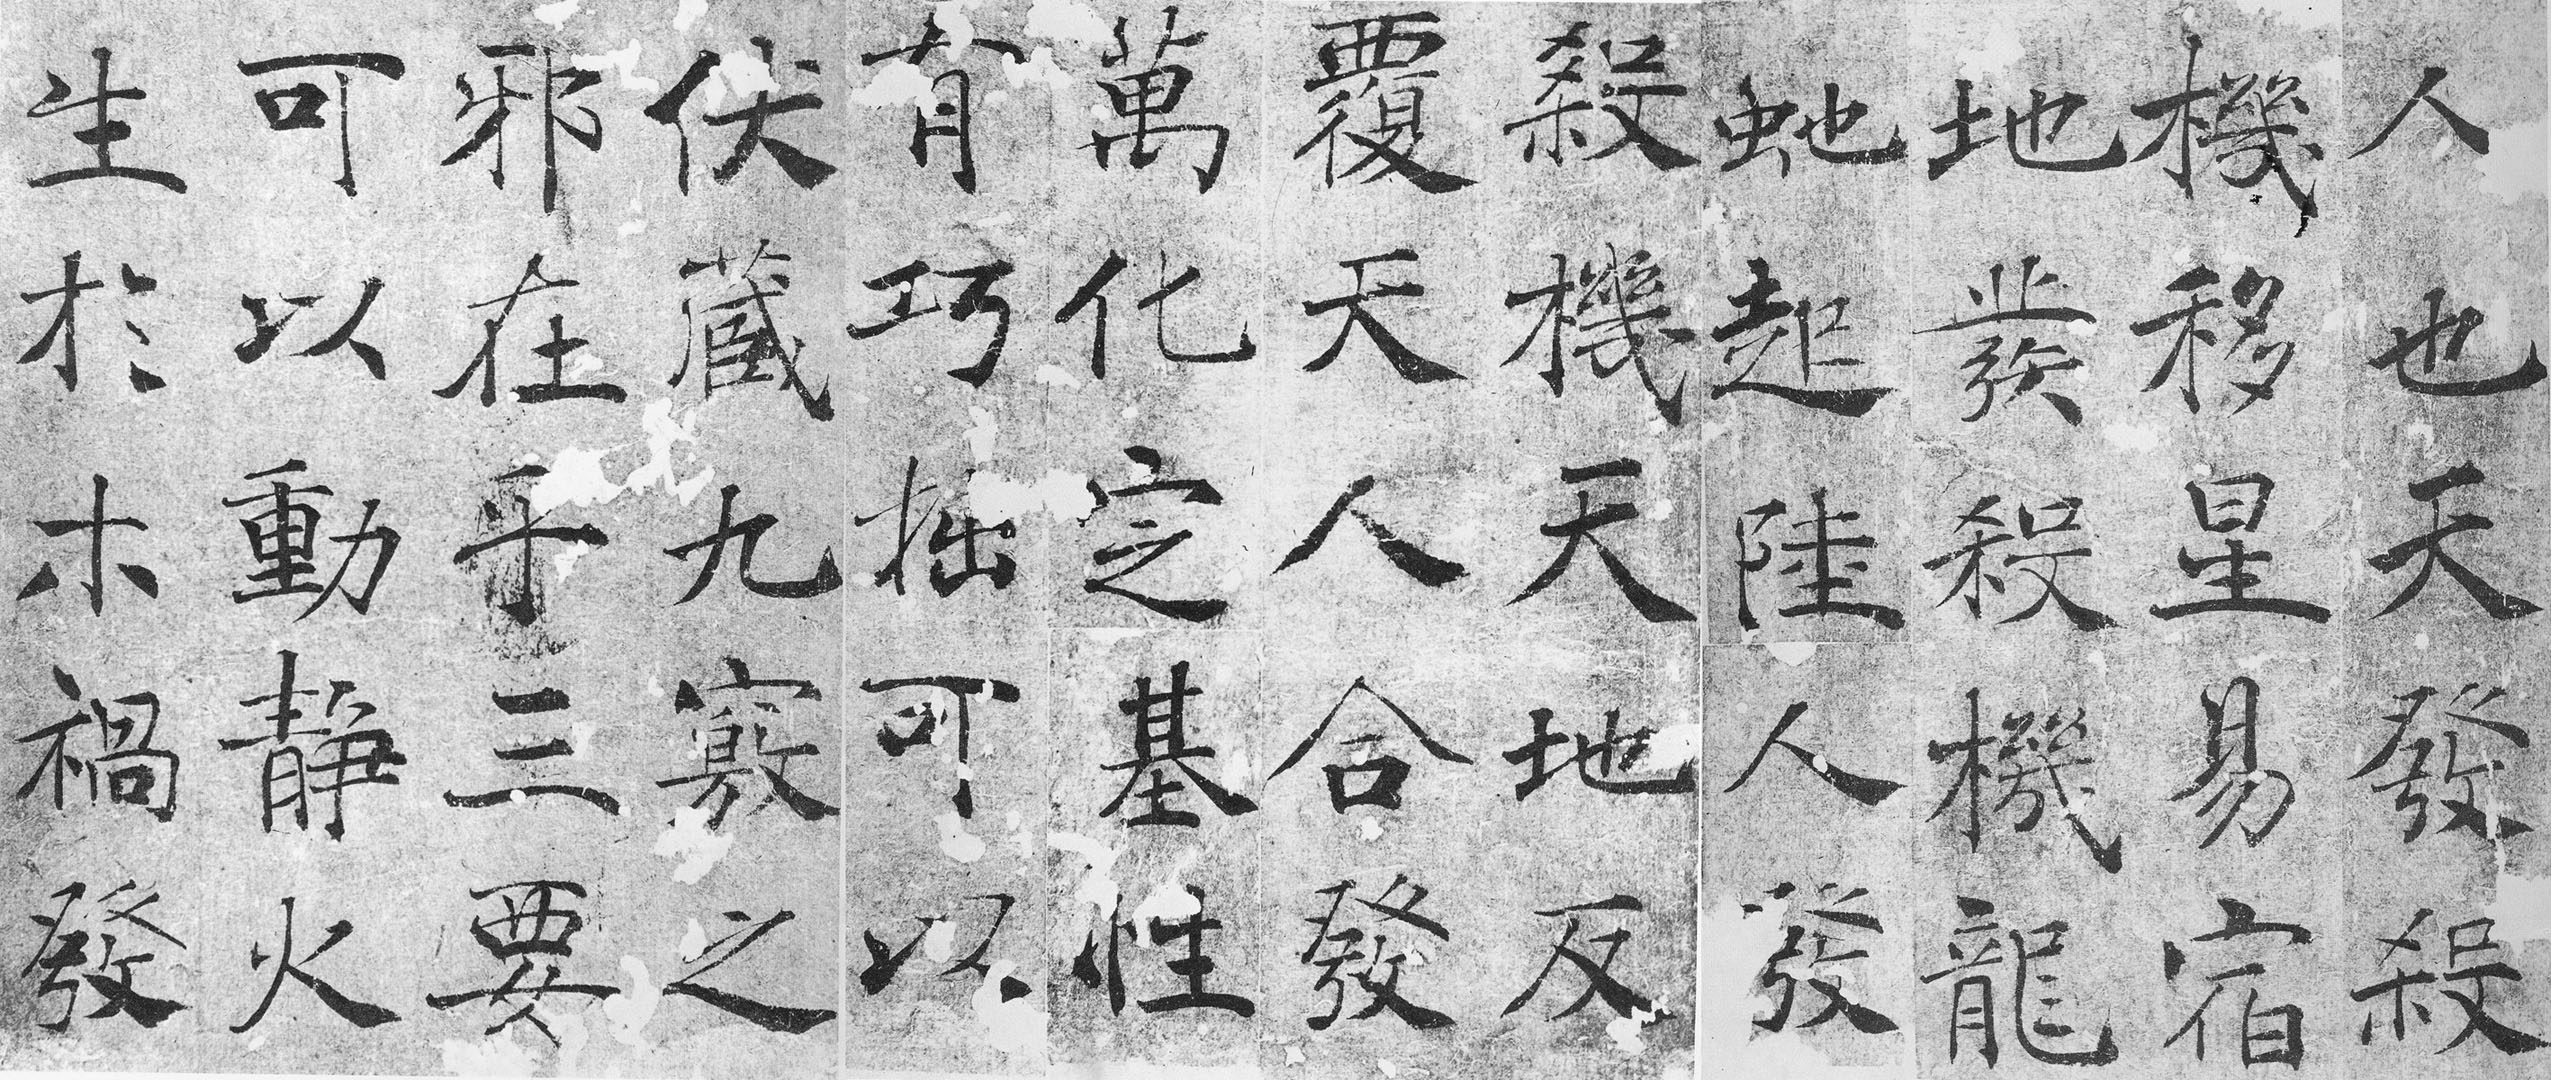 人也天發殺
機移星易宿
地發殺機龍
虵起陸人發
殺機天地反
覆天人合發
萬化定基性
有巧拙可以
伏藏九竅之
邪在乎三要
可以動靜火
生於木禍發